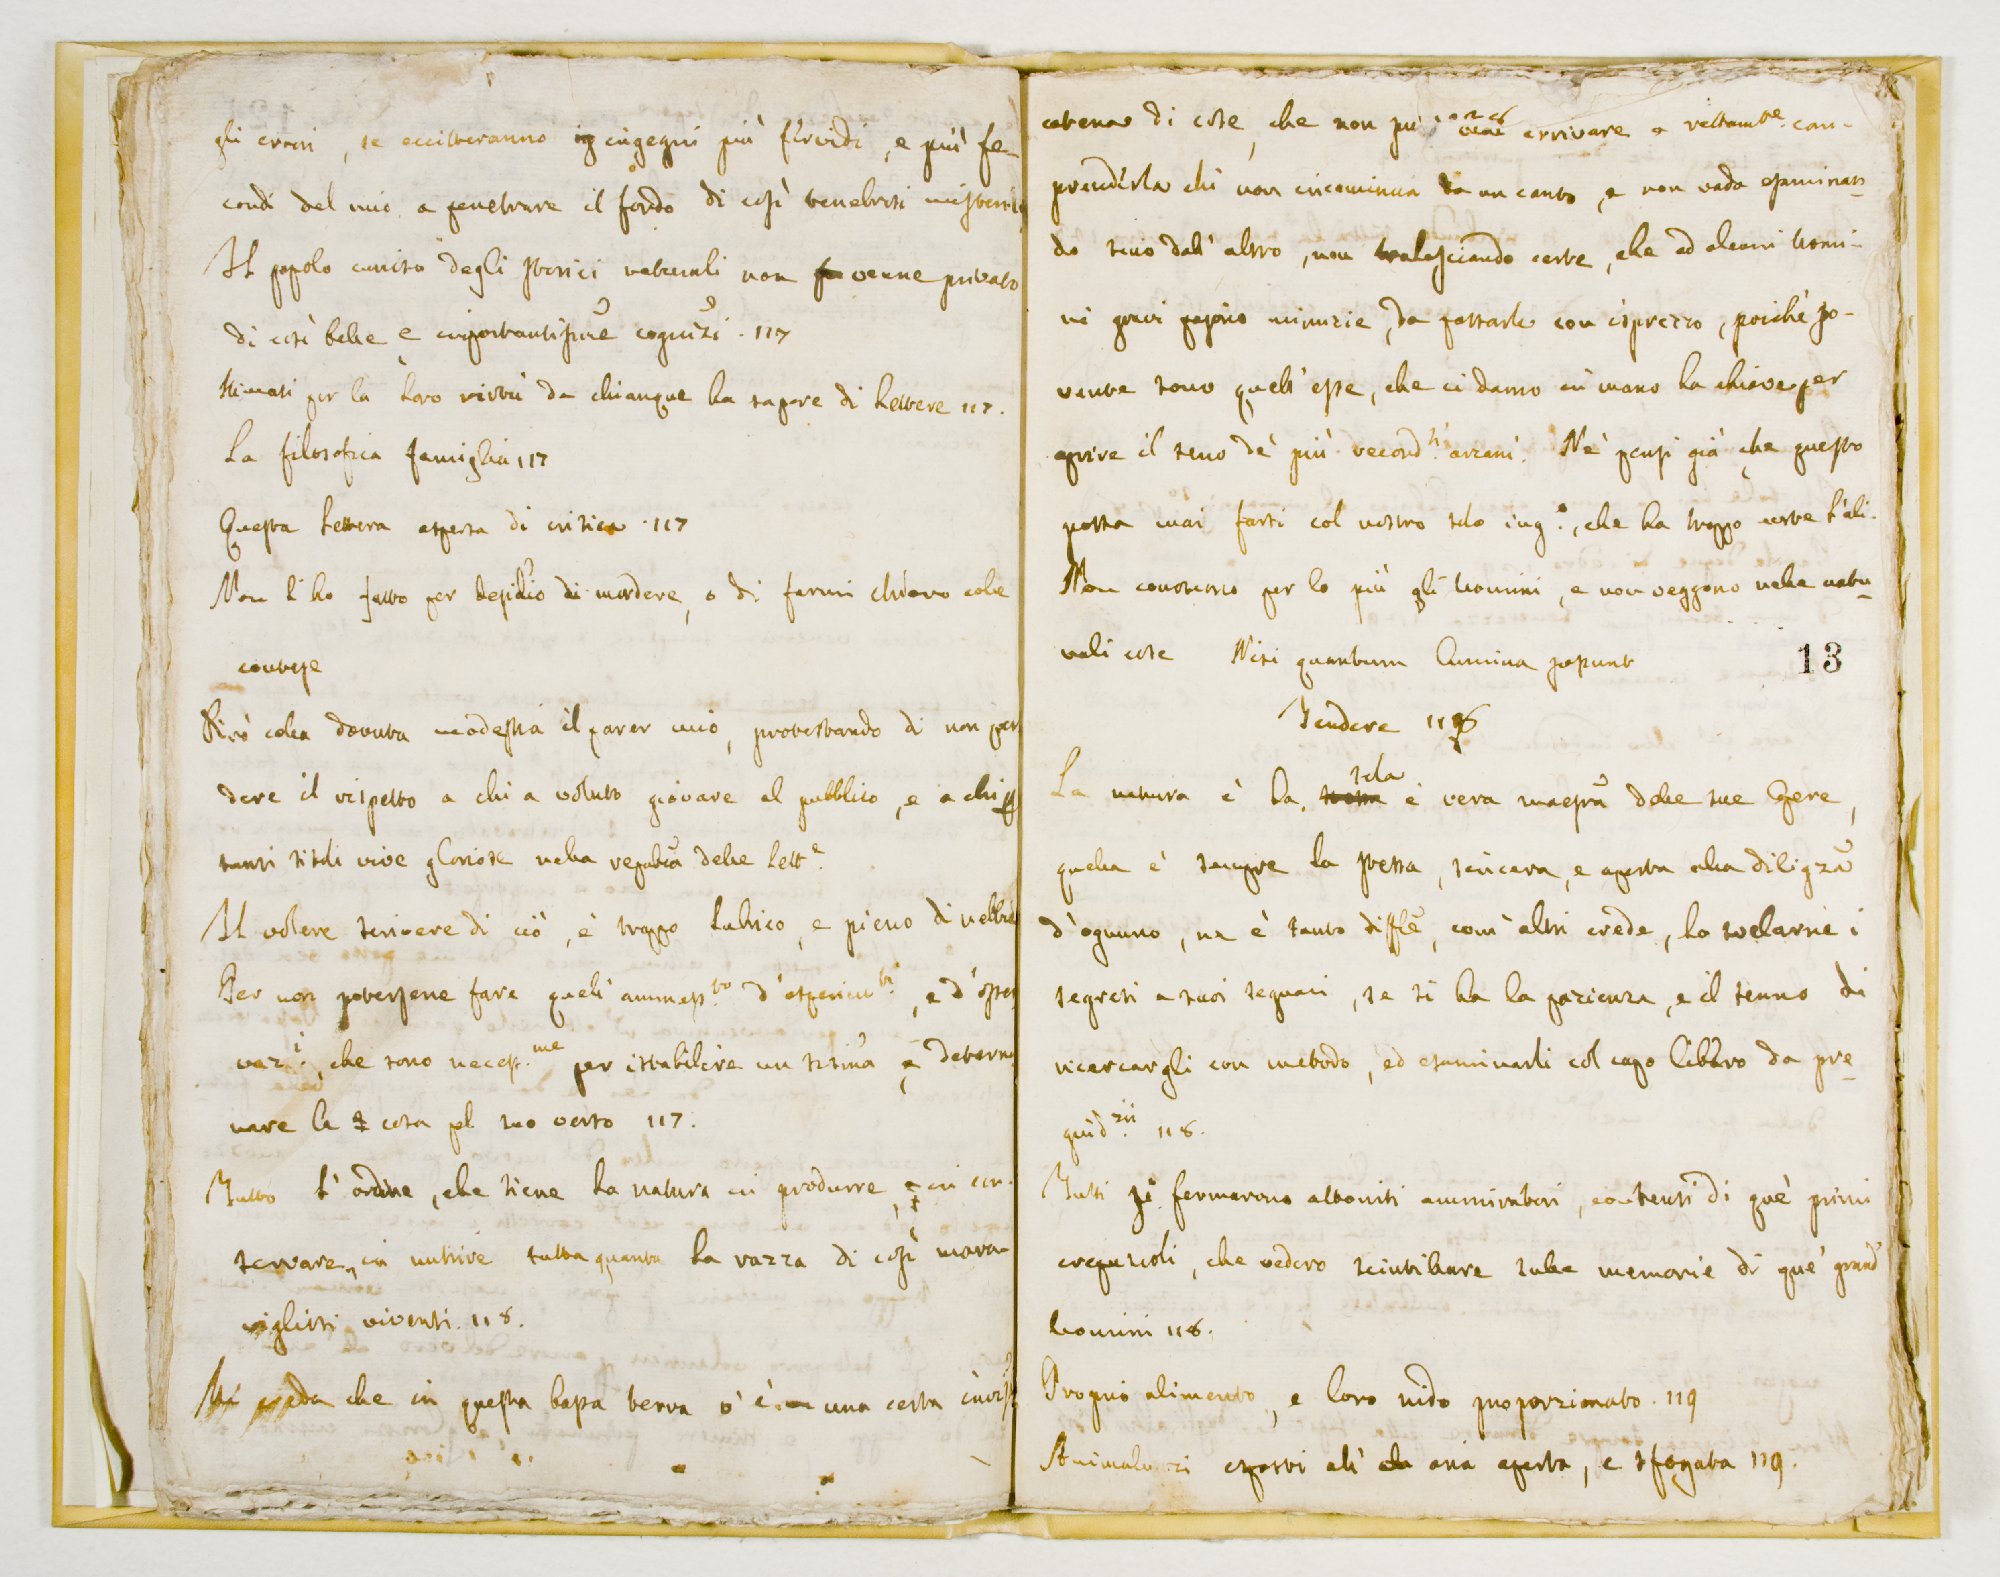 gli errori, se ecciteranno ingegni più fervidi, e più fe-
condi del mio a penetrare il fondo di così tenebrosi misterii
Il popolo curioso degli storici naturali non venne privato
di così belle e importantissime cognizi. 117
Stimati per la loro virtù da chiunque ha sapore di lettere 117.
La filosofica famiglia 117
Questa lettera aspersa di critica. 117
Non l'ho fatto per desidio di mordere, o di farmi chiaro colle
contese
Dirò colla dovuta modestia il parer mio, protestando di non per
dere il rispetto a chi a voluto giovare al pubblico, e a chi
tanti titoli vive gloriose nella repubca delle Lette.
Il volere scrivere di ciò, è troppo lubrico, e pieno di nebbie
Per non potersene fare quell' ammassto d'esperimti, e d'osser
vazi. che sono necess.me per istabilire un sistma e determi
nare la cosa pel suo verso 117.
Tutto l'ordine, che tiene la natura in produrre, e in con-
servare, in nutrire tutta quanta la razza di così mara-
vigliosi viventi. 118.
che in questa bassa terra v'è una certa
catena di cose, che non può arrivare a rettamte com-
prenderla chi non incomincia da un canto, e non vada esaminan-
do sino dall' altro, non tralasciando certe, che ad alcuni uomi-
ni gravi pajono minuzie, da passarle con isprezzo, poichè so-
vente sono quell' esse, che ci danno in mano la chiave per
aprire il seno de' più recondti arcani. Nè pensi già che questo
possa mai farsi col nostro solo inge., che ha troppo corte l'ali.
Non conoscono per lo più gli uomini, e non veggono nelle natu-
rali cose Nisi quantum Lumina possunt
13
Tendere 118
La natura è la sola e vera maestra delle sue Opere,
quella è sempre la stessa, sincera, e aperta alla diligza
d'ognuno, ne è tanto diffle, com' altri crede, lo svelarne i
segreti a suoi seguaci, se si ha la pazienza, e il senno di
ricercargli con metodo, ed esaminarli col capo libero da pre-
giudzii. 118.
Tutti si fermarono attoniti ammiratori, contenti di que' primi
crepuscoli, che vedero scintillare sulle memorie di que' grand'
uomini 118.
Proprio alimento, e loro nido proporzionato. 119
Animaluzzi esposti all' aria aperta, e sfogata 119.